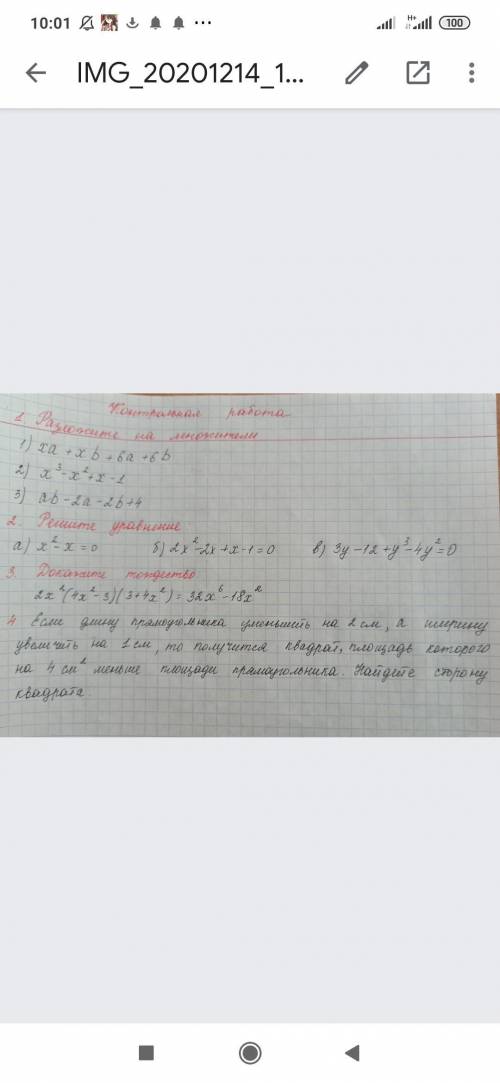 10:01 H+ 100
IMG_20201214_1...
Контрольная работа
1. Разложите на множители
1) xa + xb + 6a + 6b
2) x³ - x² + x - 1
3) ab - 2a - 2b + 4
2. Решите уравнение
а) x² - x = 0 б) 2x² - 2x + x - 1 = 0 в) 3y - 12 + y³ - 4y² = 0
3. Докажите тождество
2x²(4x² - 3)(3 + 4x²) = 32x⁶ - 18x²
4 Если длину прямоугольника уменьшить на 2 см, а ширину
увеличить на 1 см, то получится квадрат, площадь которого
на 4 см² меньше площади прямоугольника. Найдите сторону
квадрата.